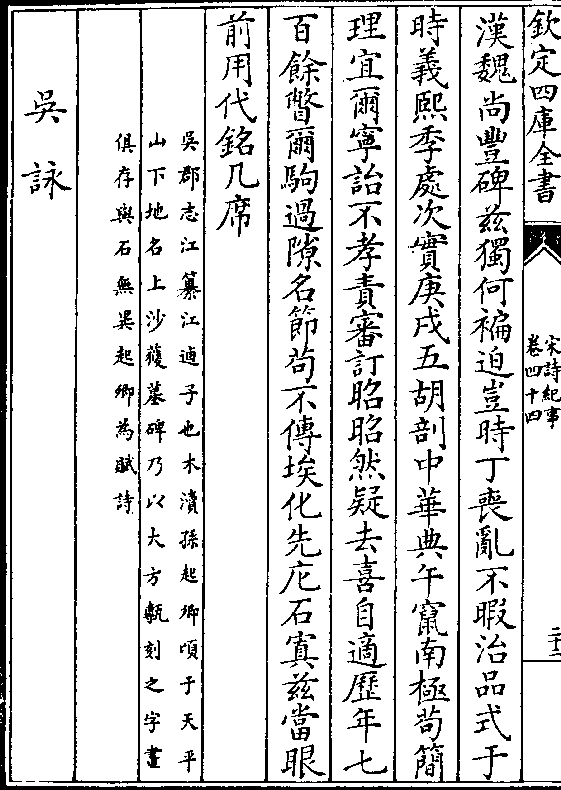 欽定四庫全書
宋詩紀事
卷四十四
漢魏尚豐碑兹獨何褊迫豈時丁喪亂不暇治品式于
時義熙季處次實庚戌五胡剖中華典午竄南極茍簡
理宜爾寧詒不孝責審訂昭昭然疑去喜自適歴年七
百餘瞥爾駒過隙名節茍不傳埃化先庀石寘兹當眼
前用代銘几席
吳郡志江纂江逌子也木瀆孫起卿頃于天平
山下地名上沙獲墓碑乃以大方甎刻之字畫
俱存與石無異起卿為賦詩
吳詠